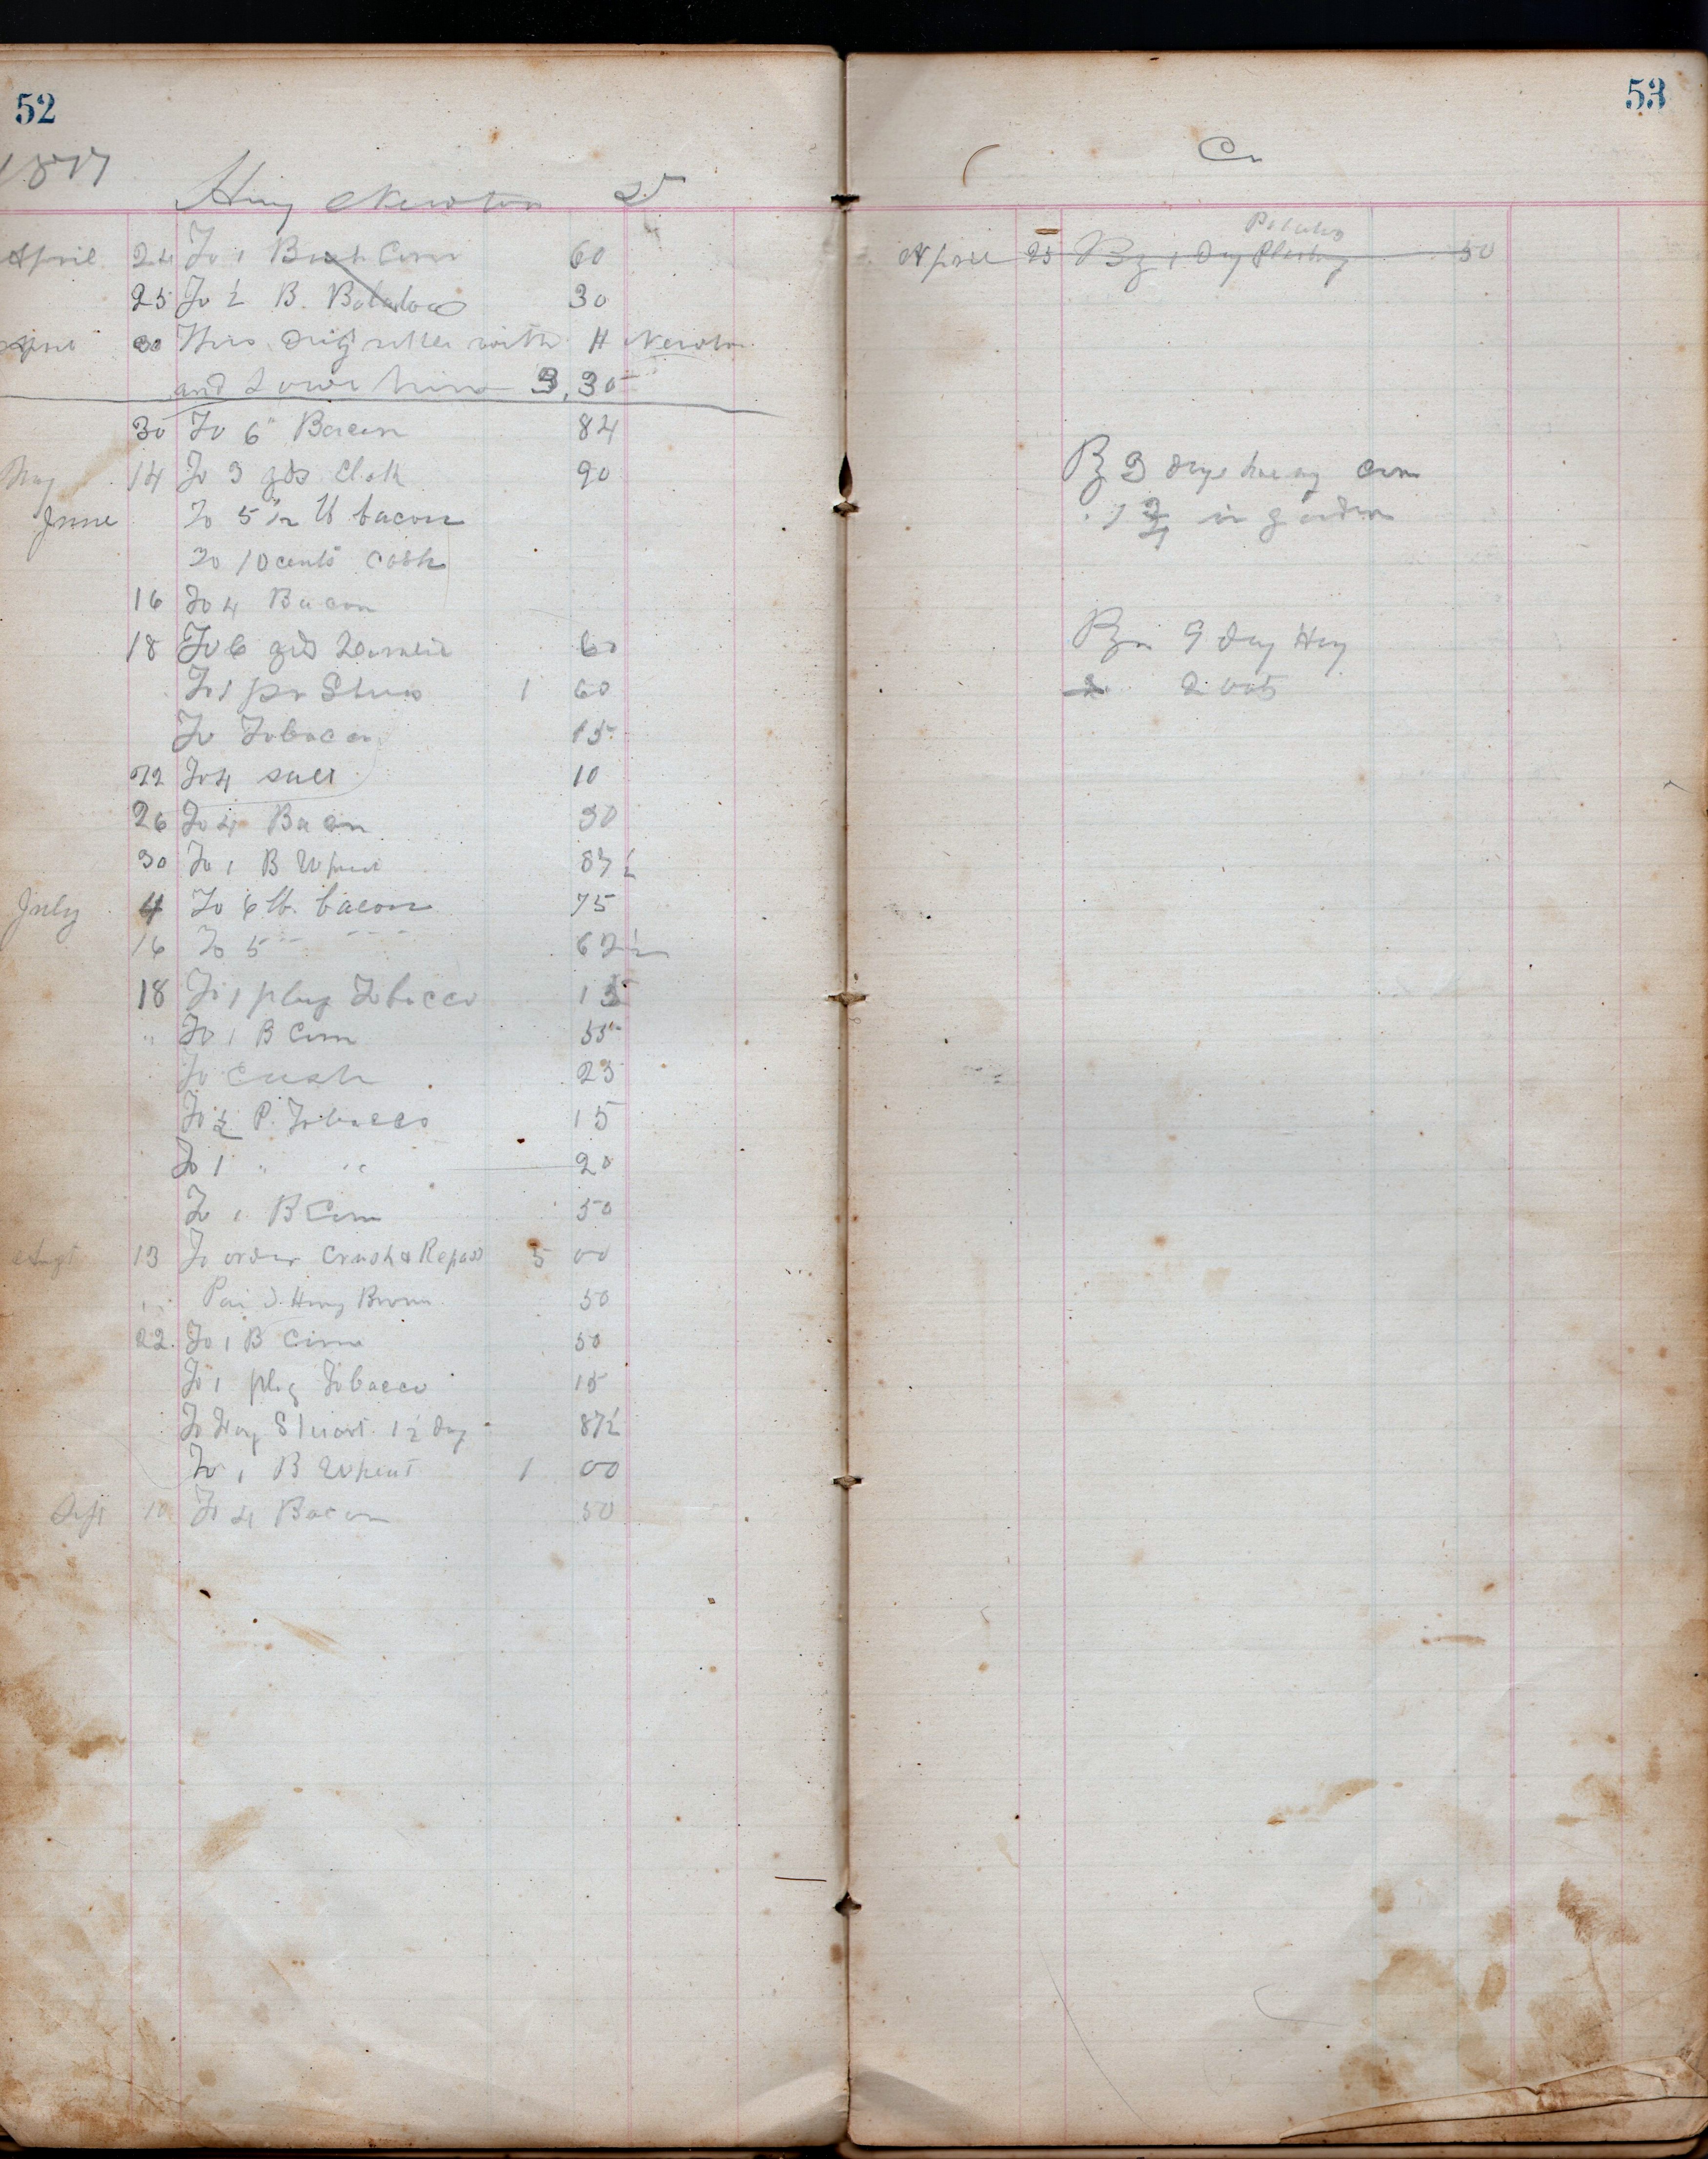 52
1877
Henry Newton
April 24 To 1 Bush Corn 60
25 To ½ B. Potatoes 30
April 30 This day settled with H Newton
and I owe him 3,30
30 To 6 " Bacon 84
May 14 To 3 yds Cloth 90
June To 5 ½ lb bacon
To 10 cents cash
16 To 4 Bacon
18 To 6 yds 60
To 1 pr Shoes 1 60
To Tobacco 15
22 To 4 salt 10
26 To 4 Bacon 50
30 To 1 B Wheat 87 ½
July 4 To 6 lb. bacon 75
16 To 5 " " 62 ½
18 To 1 plug Tobacco 15
" To 1 B Corn 55
To Cash 25
To ½ P. Tobacco 15
To 1 " " 20
To 1 B Corn 50
Augt 13 To order Crush & Repass 5 00
" Paid Henry Brown 50
22 To 1 B Corn 50
To 1 plug Tobacco 15
To Stuart 1 ½ day 87 ½
To 1 B Wheat 1 00
Sept 10 To 4 Bacon 50
53
Cr
Potatoes
April 25 By 1 Day Planting 50
By 3 days hoeing Corn
1 3/4 in garden
By 9 day Hay
2 oats